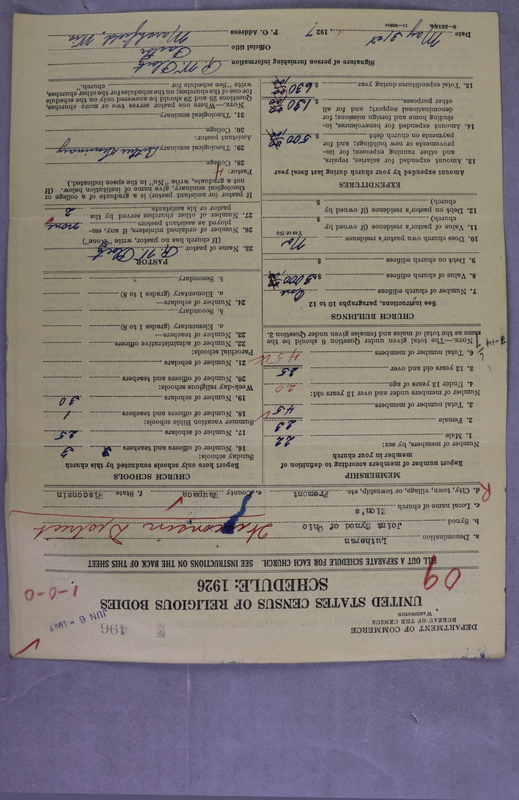 DEPARTMENT OF COMMERCE
BUREAU OF THE CENSUS
WASHINGTON
496
JUN 6 - 1927
UNITED STATES CENSUS OF RELIGIOUS BODIES
SCHEDULE: 1926
09
1-0-0
FILL OUT A SEPARATE SCHEDULE FOR EACH CHURCH. SEE INSTRUCTIONS ON THE BACK OF THIS SHEET
a. Denomination Lutheran
b. Synod Joint Synod of Ohio
Wisconsin District
c. Local name of church
d. City, town, village, or township, etc. Fremont
e. County Waupaca f. State, Wisconsin
R
MEMBERSHIP
Report number of members according to definition of member in your church
Number of members, by sex:
1. Male 22
2. Female 23
3. Total number of members 45
Number of members under and over 13 years old:
4. Under 13 years of age 20
5. 13 years old and over 25
6. Total number of members 45
NOTE.—The total given under Question 6 should be the same as the total of males and females given under Question 3.
CHURCH BUILDINGS
See instructions, paragraphs 10 to 12
7. Number of church edifices One
8. Value of church edifices $ 3000.00
9. Debt on church edifices $
10. Does church own pastor's residence No
Yes or No
11. Value of pastor's residence (if owned by church) $
12. Debt on pastor's residence (if owned by church) $
EXPENDITURES
Amount expended by your church during last fiscal year
13. Amount expended for salaries, repairs, and other running expenses; for improvements or new buildings; and for payments on church debt $ 500.00
14. Amount expended for benevolences, including home and foreign missions; for denominational support; and for all other purposes $ 130.00
15. Total expenditures during year $ 630.00
CHURCH SCHOOLS
Report here only schools conducted by this church
Sunday schools:
16. Number of officers and teachers 3
17. Number of scholars 25
Summer vacation Bible schools:
18. Number of officers and teachers 1
19. Number of scholars 30
Week-day religious schools:
20. Number of officers and teachers
21. Number of scholars
Parochial schools:
22. Number of administrative officers
23. Number of teachers—
a. Elementary (grades 1 to 8)
b. Secondary
24. Number of scholars—
a. Elementary (grades 1 to 8)
b. Secondary
PASTOR
25. Name of pastor
(If church has no pastor, write "None")
26. Number of ordained ministers, if any, employed as assistant pastors none
27. Number of other churches served by the pastor or his assistants 2
If pastor (or assistant pastor) is a graduate of a college or theological seminary, give name of institution below. (If not a graduate, write "No" in the space indicated.)
Pastor:
28. College
29. Theological seminary Luther Seminary
Assistant pastor:
30. College
31. Theological seminary
NOTE.—Where one pastor serves two or more churches, Questions 28 and 29 should be answered only on the schedule for one of the churches; on the schedules for the other churches, write "See schedule for church."
Signature of person furnishing information
Official title Pastor
P. O. Address Marshfield, Wis
Date May 31st 1927